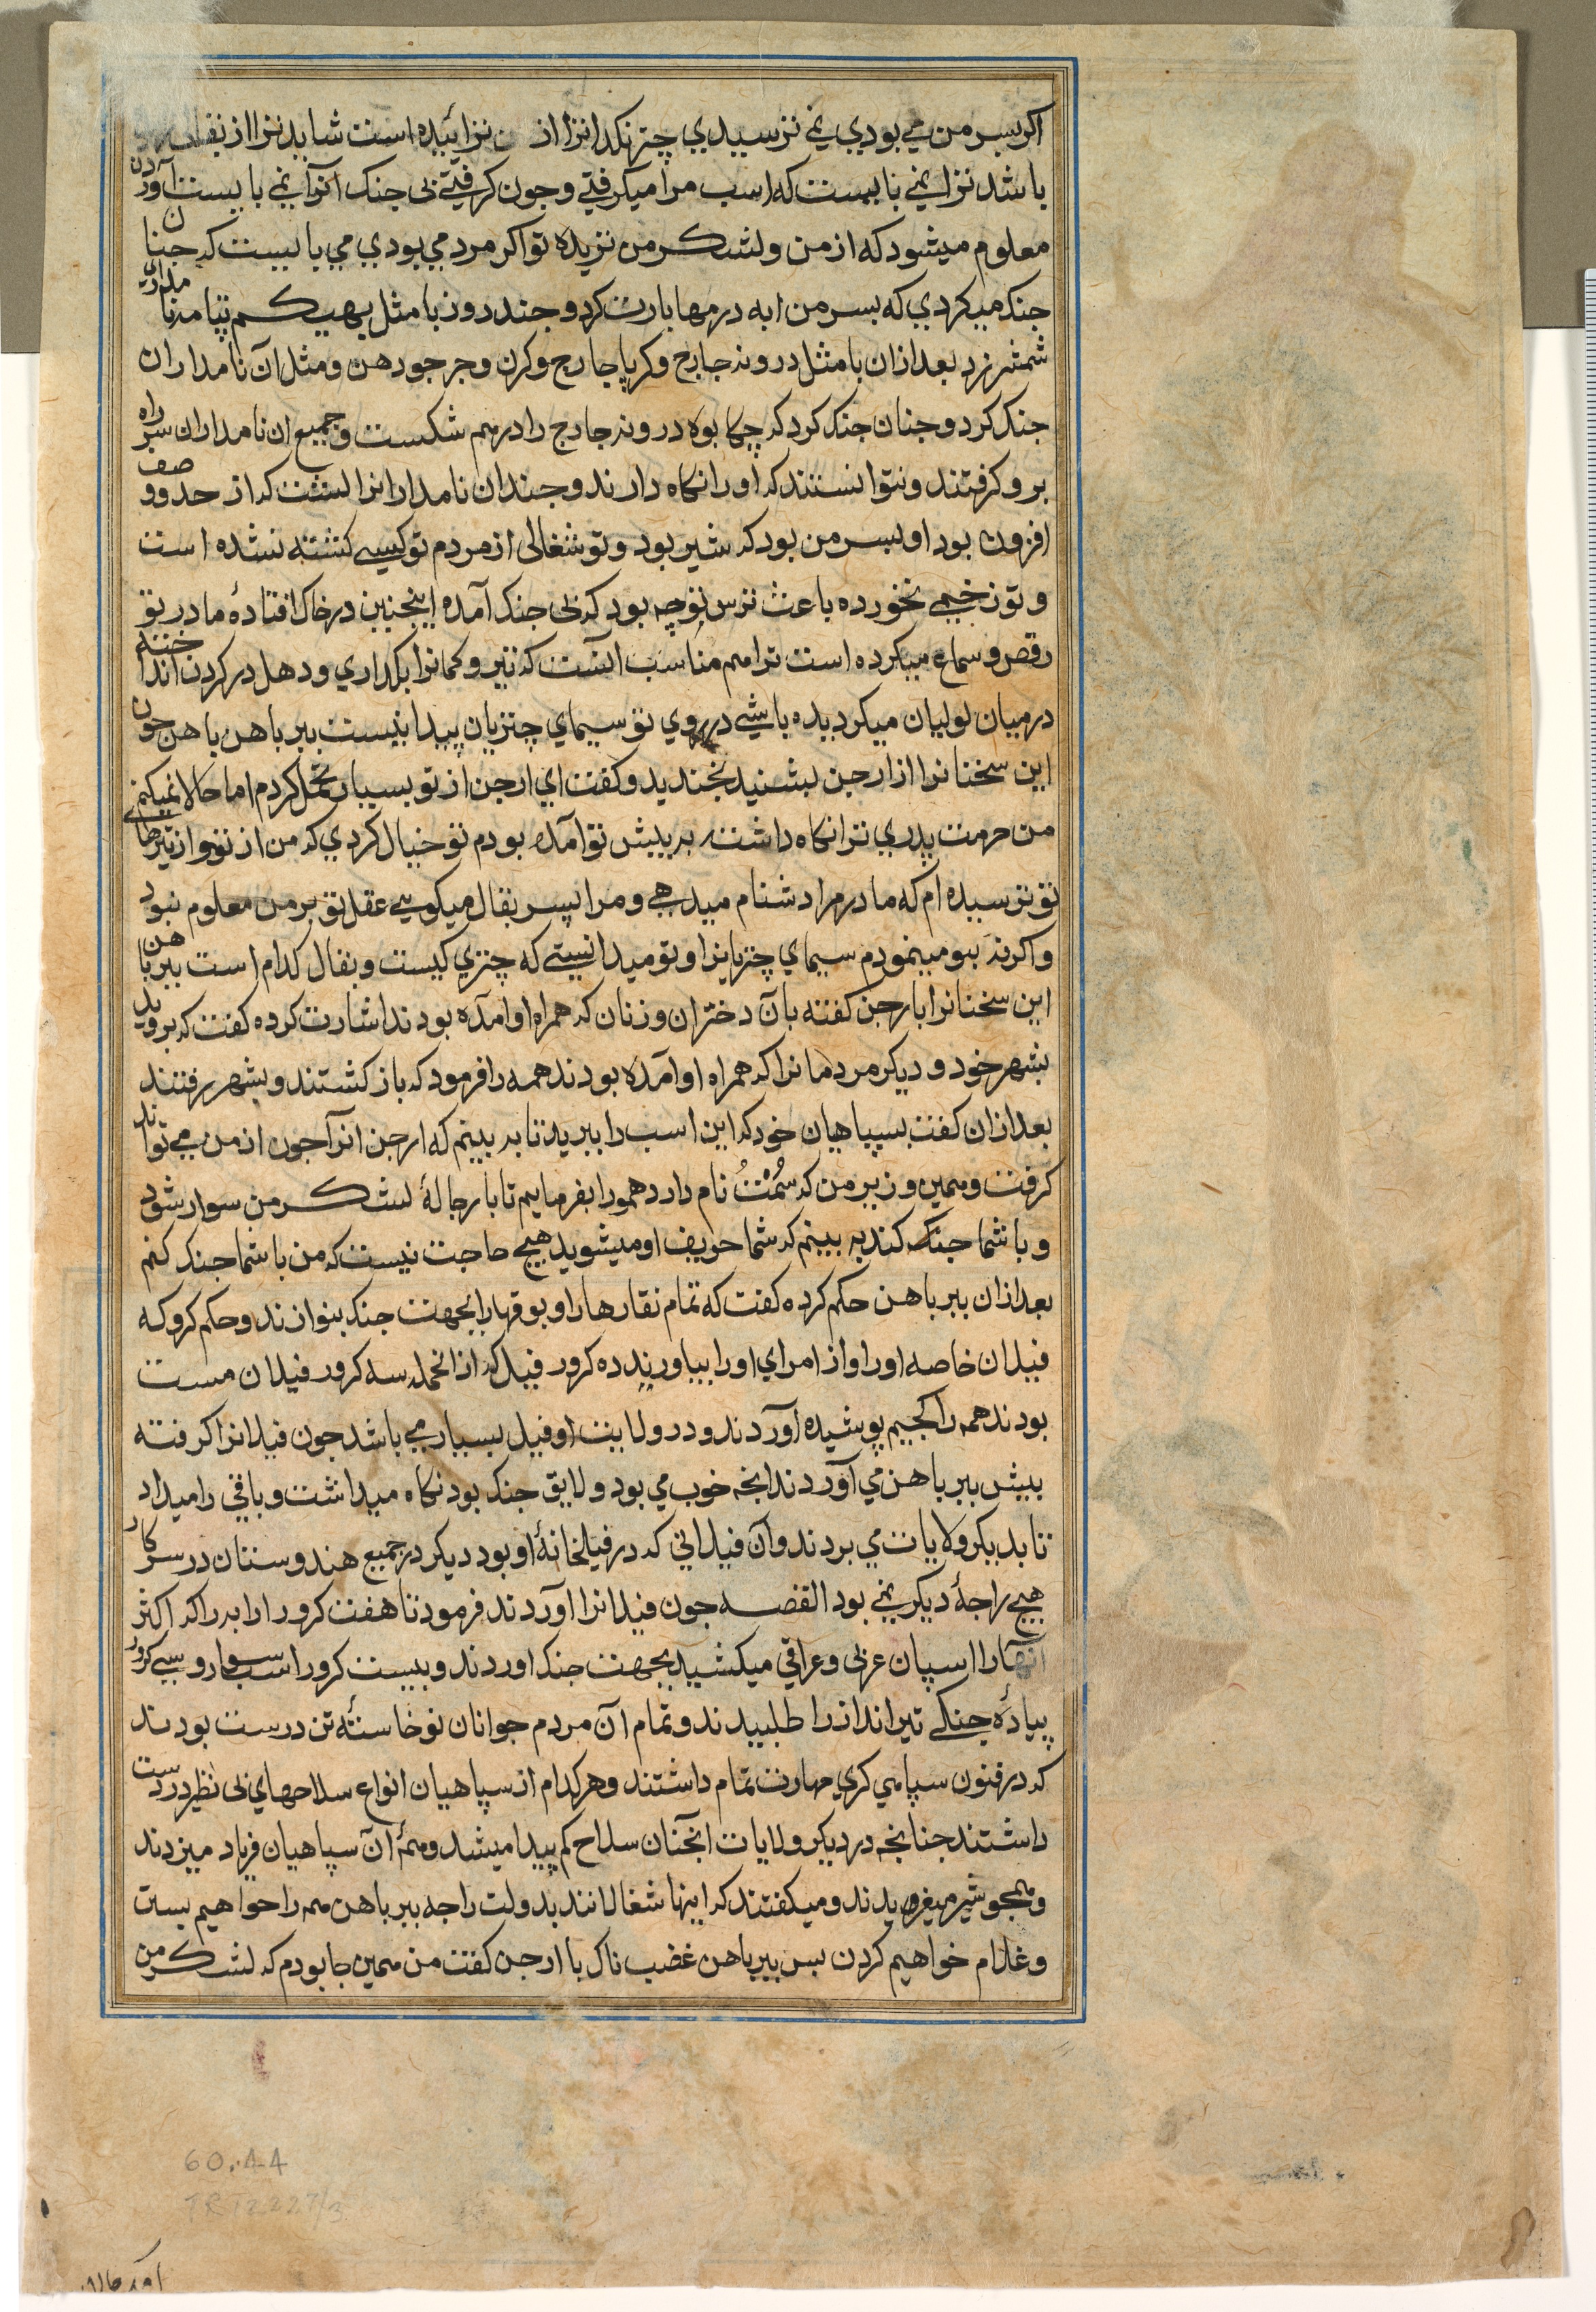 اکر پسر من می بودی نمی ترسیدی چتر نکدا ترا از نزائیده است شاید ترا از بقالی
باشد ترا نمی بایست که اسب مرا میکرفتی و چون کرفتی بی جنک آنرا نمی بایست آوردن
معلوم میشود که از من و لشکر من ترسیده تو اکر مرد می بودی می بایست که چنان
جنک میکردی که پسر من ابه در مهابارت کرد و چند روز با مثل بهیکم پتامه نامداری
شمشر زد بعد ازان با مثل درونه چارج و کرپا چارج و کرن و جرجودهن و مثل آن نامداران
جنک کرد و چنان جنک کرد که چکابوه درونه چارج را درهم شکست و جمیع ان نامداران سر راه
برو کرفتند و نتوانستند که او را نکاه دارند و چندان نامدارانرا کشت که از حد و وصف
افزون بود او پسر من بود که شیر بود و تو شغالی از مردم تو کسی کشته نشده است
و تو زخمی نخورده باعث ترس تو چه بود که بی جنک آمده اینچنین در خاک افتادۀ مادر تو
رقص و سماع میکرده است ترا هم مناسب انست که تیر و کمانرا بکذاری و دهل در کردن انداخته
در میان لولیان میکردیده باشی در روی تو سیمای چتریان پیدا نیست ببر باهن باهن چون
این سخنانرا از ارجن بشنید بخندید و کفت ای ارجن از تو بسیار تحمل کردم اما حالا نمیکنم
من حرمت پدری ترا نکاه داشته به پیش تو آمده بودم تو خیال کردی که من از تو و از تیرهای
تو ترسیده ام که مادر مرا دشنام میدهی و مرا پسر بقال میکویی عقل تو بر من معلوم نبود
و اکر نه بتو مینمودم سیمای چتریانرا و تو میدانستی که چتری کیست و بقال کدام است ببر باهن
این سخنانرا بارجن کفته بآن دختران و زنان که همراه او آمده بودند اشارت کرده کفت که بروید
بشهر خود و دیکر مردمانرا که همراه او آمده بودند همه را فرمود که باز کشتند و بشهر رفتند
بعد ازان کفت بسپاهیان خود که این اسب را ببرید تا به بینم که ارجن انرا چون از من می تواند
کرفت و همین وزیر من که سُمْتُ نام دارد همو را بفرمایم تا با رجالۀ لشکر من سوار شود
و با شما جنک کند به بینم که شما حریف او میشوید هیچ حاجت نیست که من با شما جنک کنم
بعد ازان ببر باهن حکم کرده کفت که تمام نقارها را و بوقها را بجهت جنک بنوازند و حکم کرد که
فیلان خاصه او را و از امرای او را بیاورند ده کرور فیل که از انجمله سه کرور فیلان مست
بودند همه را کجیم پوشیده آوردند و در ولایت او فیل بسیار می باشد چون فیلانرا کرفته
پیش ببر باهن می آوردند انچه خوب می بود و لایق جنک بود نکاه میداشت و باقی را میداد
تا بدیکر ولایات می بردند و آن فیلانی که در فیلخانۀ او بود دیکر در جمیع هندوستان در سرکار
هیچ راجۀ دیکر نمی بود القصه چون فیلانرا آوردند فرمود تا هفت کرور ارابه را که اکثر
آنها را اسپان عربی و عراقی میکشید بجهت جنک اوردند و بیست کرور اسب سوار و سی کرور
پیادۀ جنکی تیرانداز را طلبیدند و تمام آن مردم جوانان نوخاستۀ تن درست بودند
که در فنون سپاهی کری مهارت تمام داشتند و هر کدام از سپاهیان انواع سلاحهای بی نظیر در دست
داشتند چنانچه در دیکر ولایات آنچنان سلاح کم پیدا میشد و همۀ آن سپاهیان فریاد میزدند
و همچو شیر میغریدند و میکفتند که اینها شغالانند بدولت راجه ببر باهن همه را خواهیم بست
و غلام خواهیم کردن پس ببر باهن غضب ناک با ارجن کفت من همین جا بودم که لشکر من
60.44